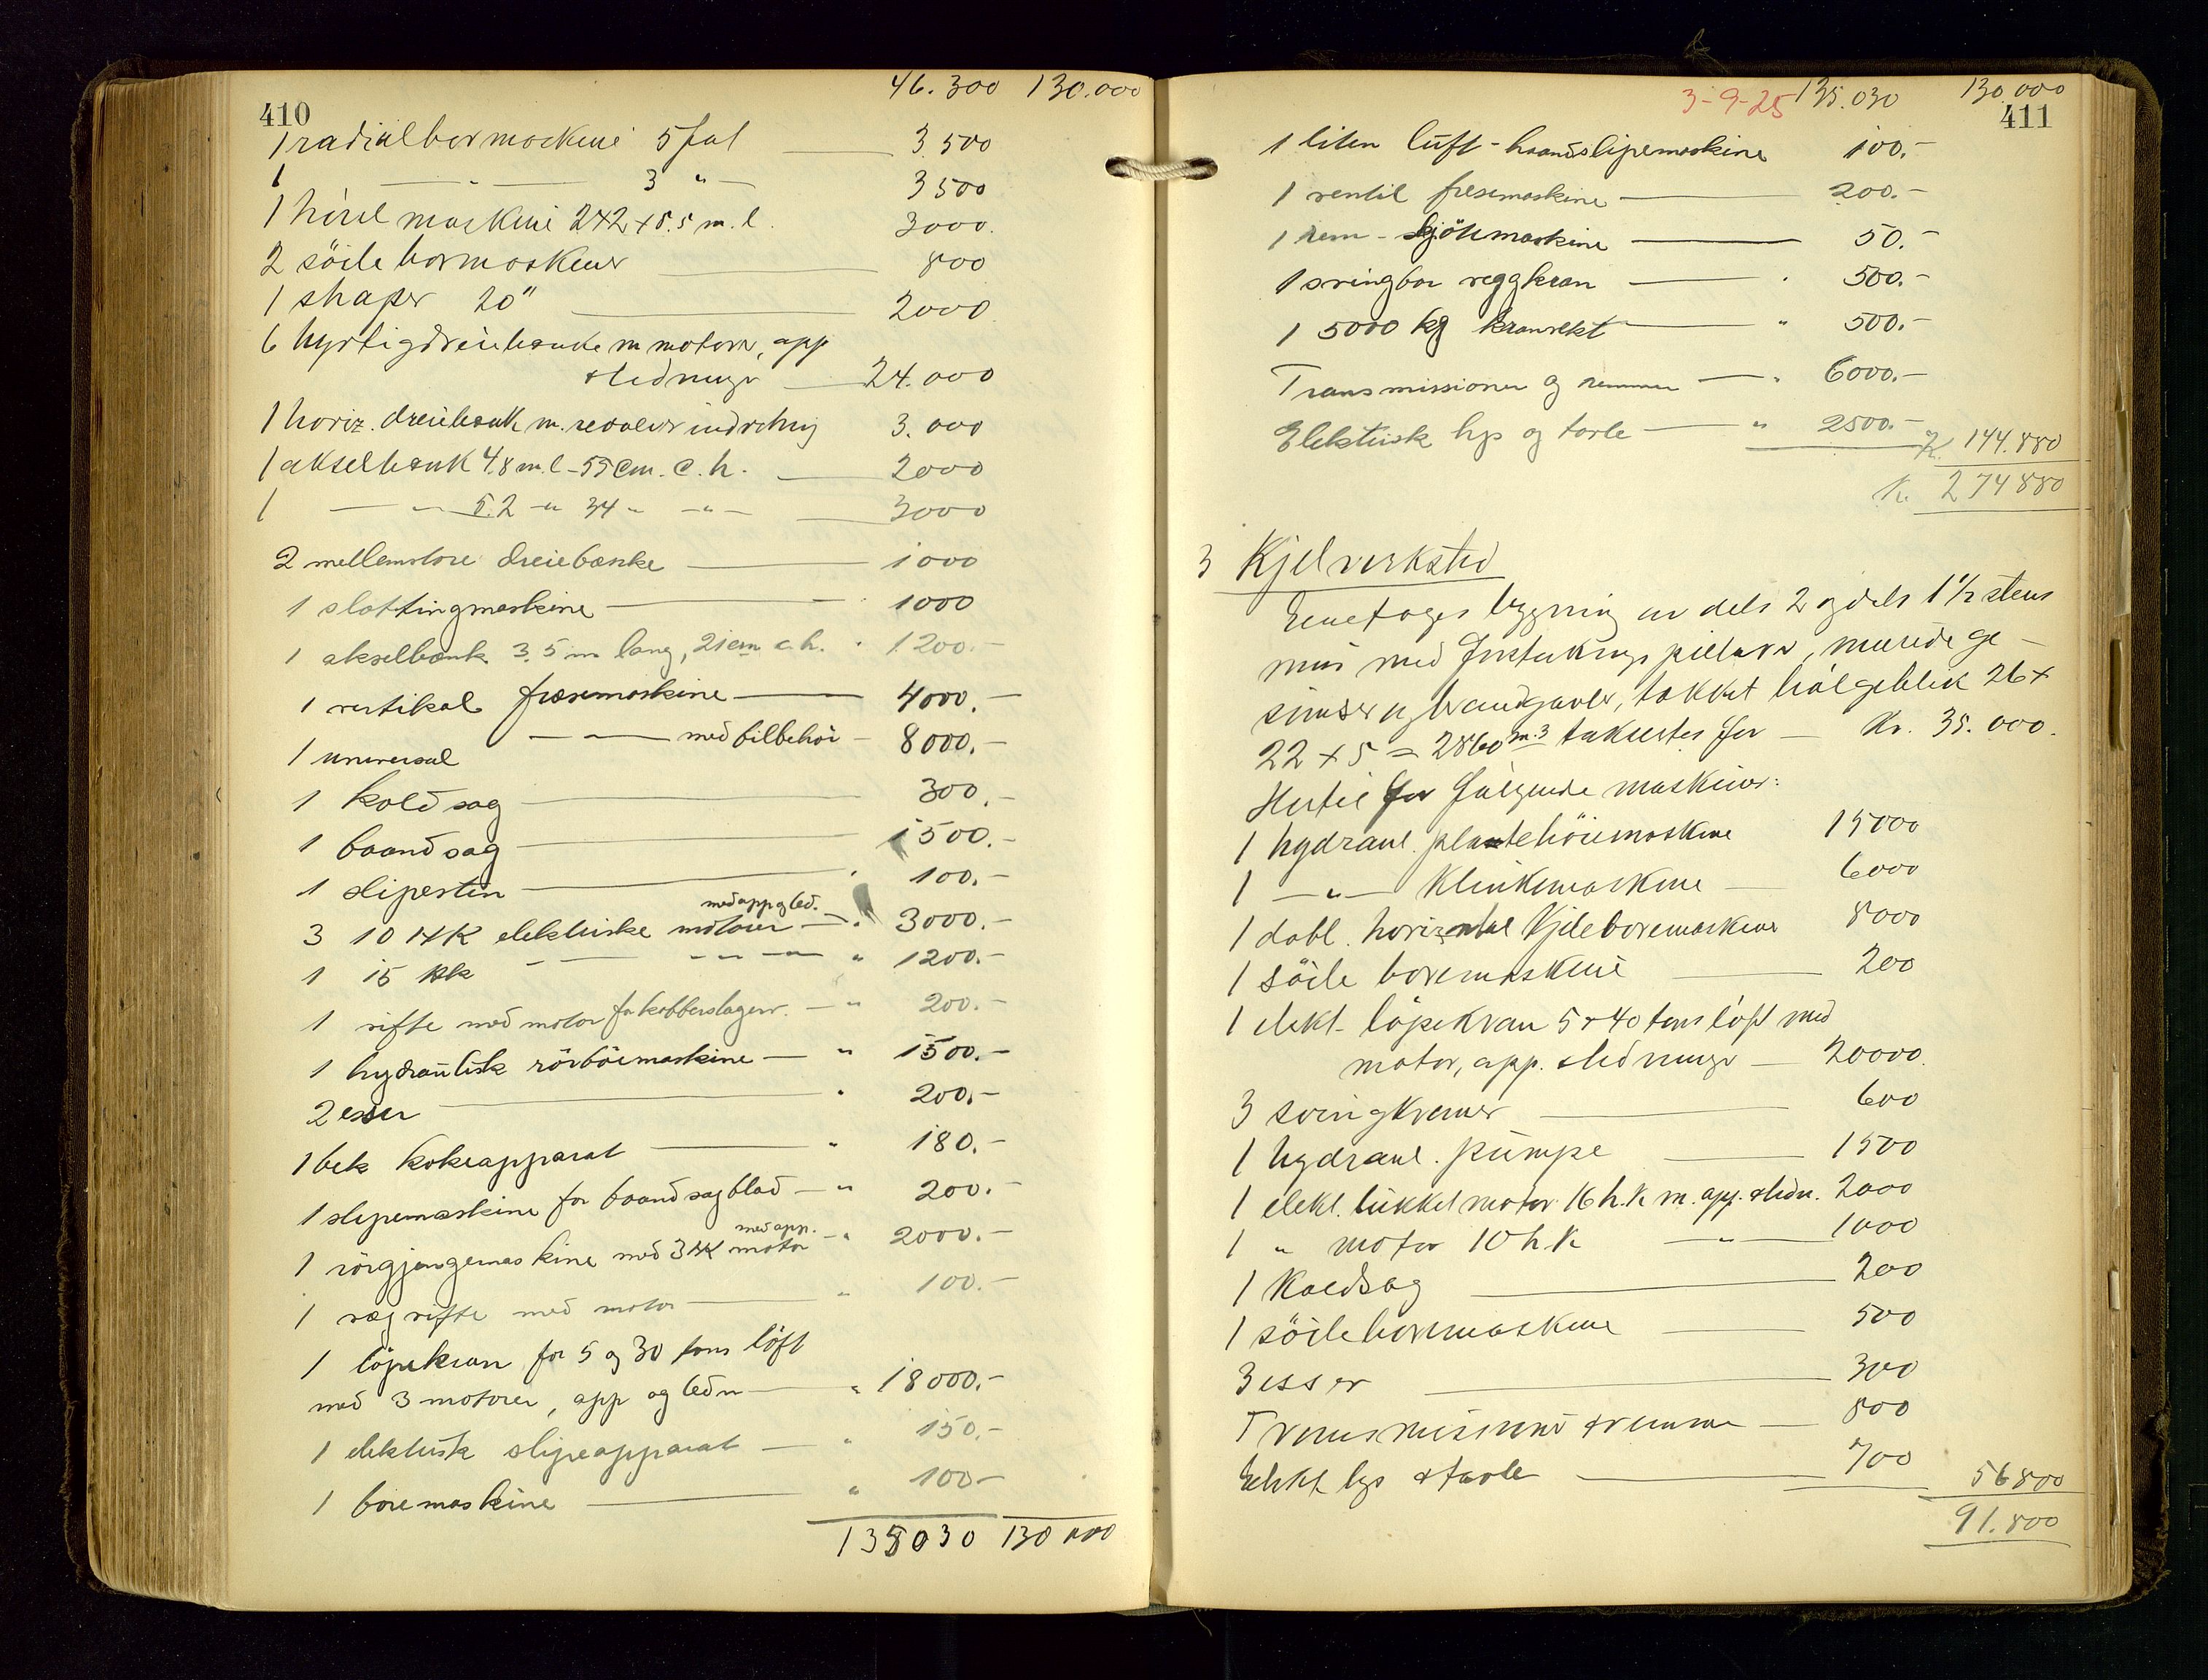 46.300 130.000
410
1 radialbormaskine 5 fot 3.500
1 — " — 3 " — 3500
1 hövelmaskine 2x2x5.5 m. l. 3000.
2 söileboremaskiner 800
1 shaper 20" 2000
6 hurtigdreiebænke m motorer, app
& ledninger 24.000
1 horiz. dreiebænk m. revolver indretnig 3.000
1 akselbænk 4.8 m. l - 55 cm. c. h. 2000
1 — " — 5.2 " 34 " — " — 3000
2 mellemstore dreiebænke 1000
1 slottingmaskine 1000
1 akselbænk 3.5 m lang, 21 cm c.h. " 1200.-
1 vertikal fræsemaskine 4000.-
1 universal — " — med tilbehör 8000.-
1 koldsag 300.-
1 baandsag 1500.-
1 slipesten " 100.-
med app og led.
3 10 HK elektriske motorer " 3000.-
1 15 Hk — " — " 1200.-
1 vifte med motor for kobberslageri. " 200.-
1 hydraulisk rörböiemaskine " 1500.-
2 esser " 200.-
1 bek kokeapparat " 180.-
1 slipemaskine for baandsagblad " 200.-
med app.
1 rörgjængemaskine med 3 HK motor " 2000.-
1 vægvifte med motor " 100.-
1 löpekran for 5 og 30 tons löft
med 3 motorer, app og ledn " 18000.-
1 elektrisk slipeapparat " 150.-
1 boremaskine " 100-
135030 130 000
3-9-25 135.030 130.000
411
1 liten luft-haandslipemaskine 100.-
1 ventil fræsemaskine 200.-
1 rem-skjötemaskine 50.-
1 svingbar veggkran " 500.-
1 5000 kg kranvekt " 500.-
Transmissioner og remmer " 6000.-
Elektrisk lys og tavle " 2500.- K. 144.880
K. 274880
3 Kjelverksted
Enetages bygning av dels 2 og dels 1 1/2 stens
mur med forsterknings pillarer, murede ge-
simser og brandgavler, takket bölgeblik 26 x
22 x 5 = 2860 m.3 takseres for — Kr. 35.000.
Hertil for følgende maskiner:
1 hydraul. platehöiemaskine 15000
1 — " — Klinkemaskine 6000
1 dobl. horizontal Kjeleboremaskine 8000
1 söile boremaskine 200
1 elekt. löpekran 5 & 40 tons löft med
motor, app. & ledninger 20000.
3 svingkraner 600
1 hydraul. pumpe 1500
1 elekt. lukket motor 16 h.k m. app. & ledn. 2000
1 " motor 10 h.k — " — 1000
1 Koldsag 200
1 söileboremaskine 500
3 esser 300
Transmissioner & remmer 800
Elekt lys & tavle 700 56800
91.800